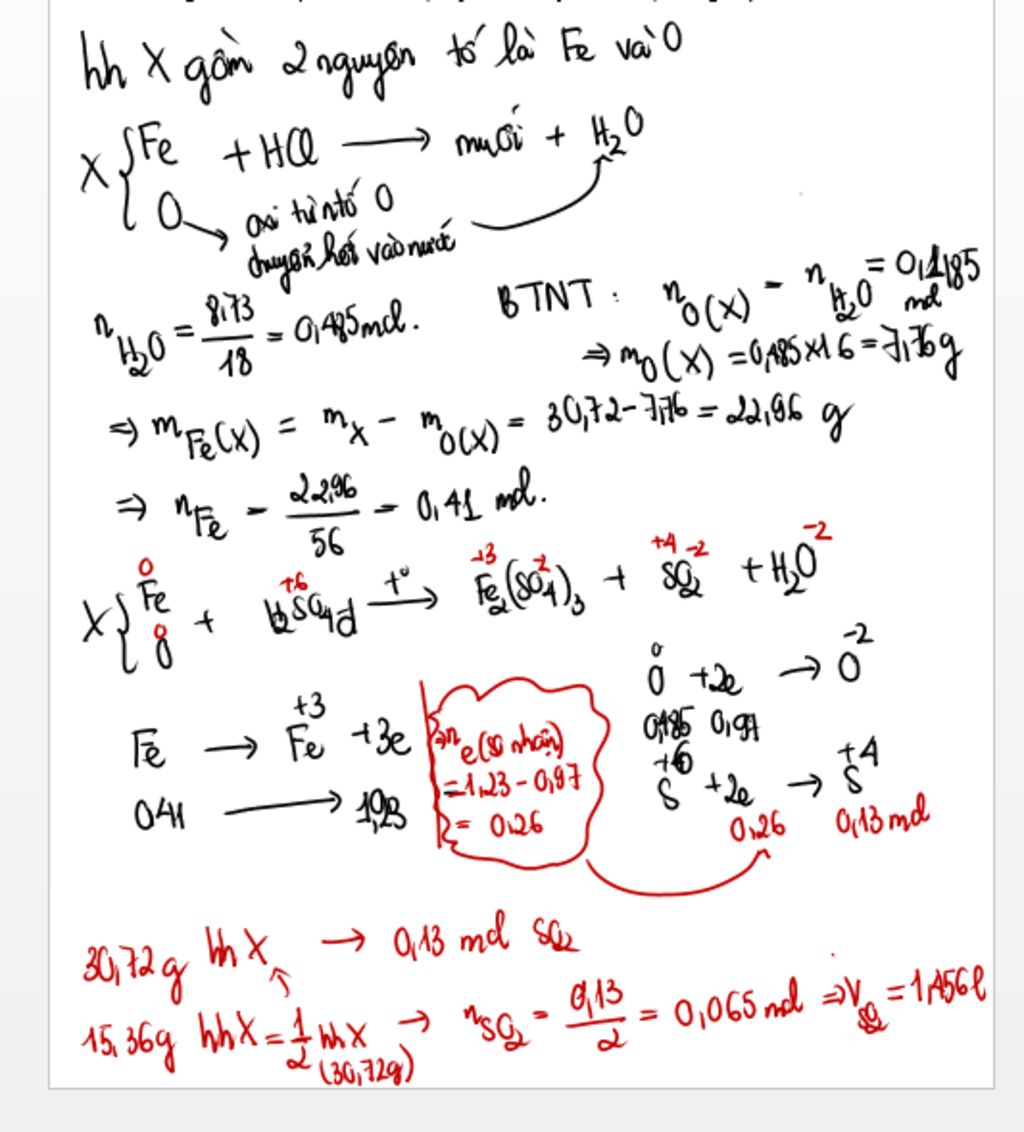 hh X gồm 2 nguyên tố là Fe và O
X { Fe + HCl → muối + H₂O
O → oxi từ ntố O
chuyển hết vào nước
n H₂O = 8,73/18 = 0,485 mol.
BTNT : n O(X) = n H₂O = 0,485 mol
⇒ m O(X) = 0,485 × 16 = 7,76 g
⇒ m Fe(X) = m X - m O(X) = 30,72 - 7,76 = 22,96 g
⇒ n Fe = 22,96/56 = 0,41 mol.
0 +6 +3 -2 +4 -2 -2
X { Fe + H₂SO₄đ t° → Fe₂(SO₄)₃ + SO₂ + H₂O
0
O
0 -2
O +2e → O
0,485 0,97
+3
Fe → Fe +3e
0,41 → 1,23
⇒ n e (S nhận)
= 1,23 - 0,97
= 0,26
+6 +4
S +2e → S
0,26 0,13 mol
30,72 g hh X → 0,13 mol SO₂
15,36g hh X = 1/2 hh X → n SO₂ = 0,13/2 = 0,065 mol ⇒ V SO₂ = 1,456 l
(30,72g)